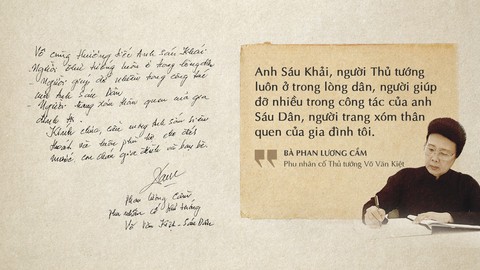 Vô cùng thương tiếc Anh Sáu Khải
Người Thủ tướng luôn ở trong lòng dân
- Người giúp đỡ nhiều trong công tác
của Anh Sáu Dân,
- Người trang xóm thân quen của gia
đình tôi.
Kính chào, cầu mong Anh sớm siêu
thoát và luôn phù hộ cho đất
nước, con cháu gia đình và bạn bè.
Phan Lương Cầm
Phu nhân cố Thủ tướng
Võ Văn Kiệt - Sáu Dân
Anh Sáu Khải, người Thủ tướng
luôn ở trong lòng dân, người giúp
đỡ nhiều trong công tác của anh
Sáu Dân, người trang xóm thân
quen của gia đình tôi.
BÀ PHAN LƯƠNG CẦM
Phu nhân cố Thủ tướng Võ Văn Kiệt